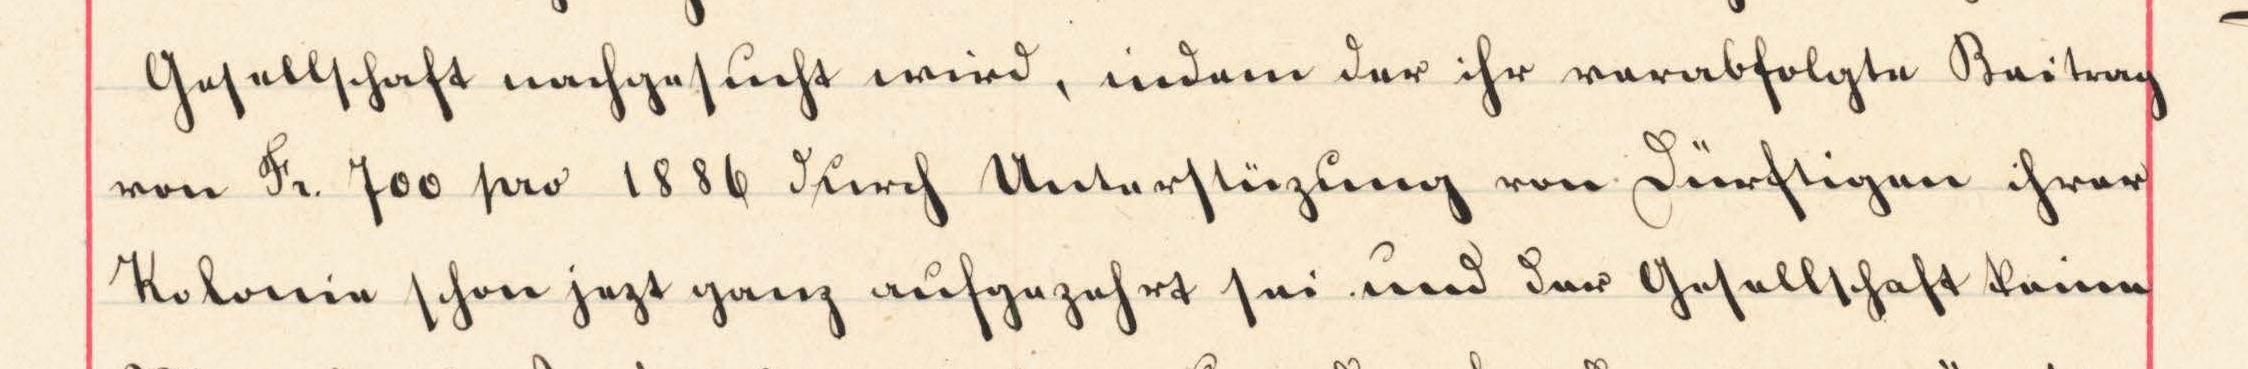 Gesellschaft nachgesucht wird, indem der ihr verabfolgte Beitrag
von Fr. 700 pro 1886 durch Unterstüzung von Dürftigen ihrer
Kolonie schon jezt ganz aufgezehrt sei und der Gesellschaft keine